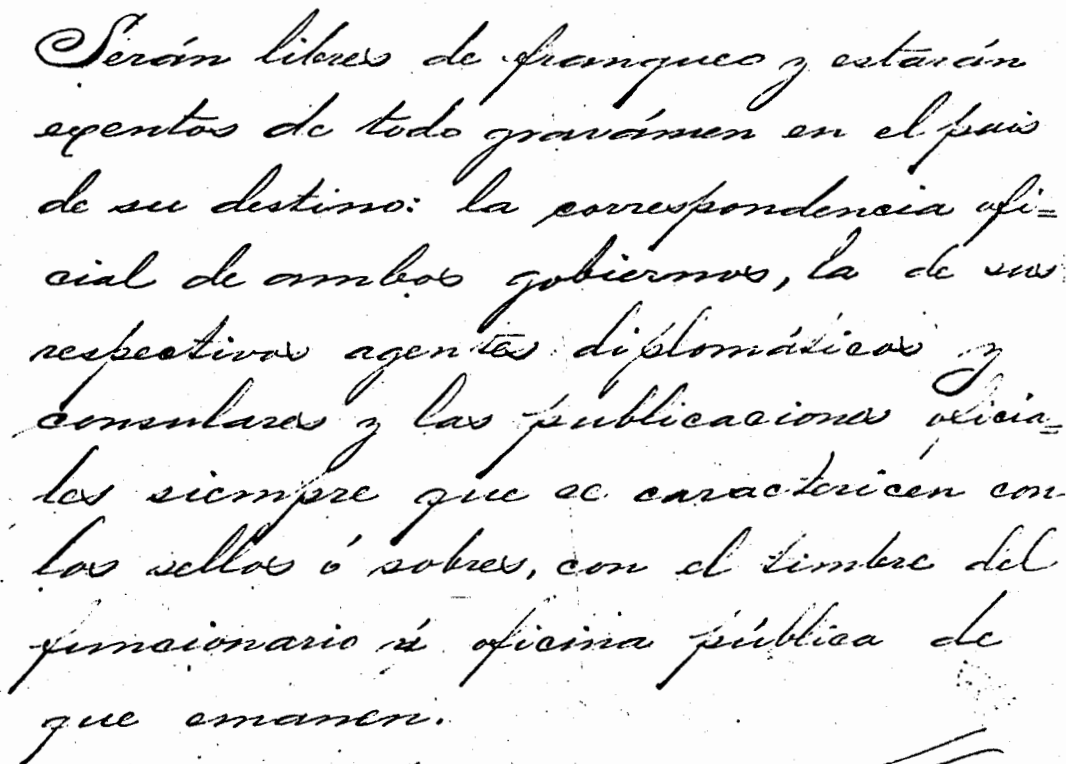 Serán libres de franqueo y estarán
exentos de todo gravámen en el pais
de su destino: la correspondencia ofi=
cial de ambos gobiernos, la de sus
respectivos agentes diplomáticos y
consulares y las publicaciones oficia=
les siempre que se caractericen con
los sellos ó sobres, con el timbre del
funcionario ú oficina pública de
que emanen.